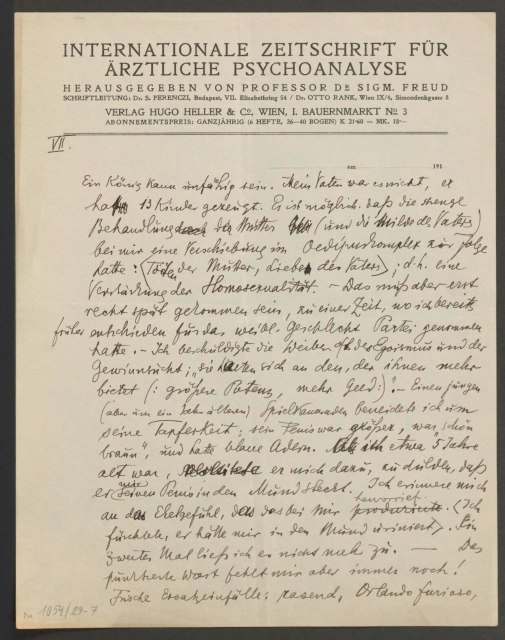 INTERNATIONALE ZEITSCHRIFT FÜR
ÄRZTLICHE PSYCHOANALYSE
HERAUSGEGEBEN VON PROFESSOR DR SIGM. FREUD
SCHRIFTLEITUNG: Dr. S. FERENCZI, Budapest, VII. Elisabethring 54 / Dr. OTTO RANK, Wien IX/4, Simondenkgasse 8
VERLAG HUGO HELLER & Co, WIEN, I. BAUERNMARKT No 3
ABONNEMENTSPREIS: GANZJÄHRIG (6 HEFTE, 36—40 BOGEN) K 21·60 = MK. 18·—
VII.
am 191
Ein König kann unfähig sein. Mein Vater war es nicht, er
hatte 13 Kinder gezeugt. Es ist möglich, daß die strenge
Behandlung der Mutter (und die Milde des Vaters)
bei mir eine Verschiebung im Oedipuskomplex zur Folge
hatte: (Töten der Mutter, Lieben des Vaters); d.h. eine
Verstärkung der Homosexualität. – Das muß aber erst
recht spät gekommen sein, zu einer Zeit, wo ich bereits
früher entschieden für das weibl. Geschlecht Partei genommen
hatte. – Ich beschuldigte die Weiber oft des Egoismus und der
Gewinnsucht; "sie halten sich an den, der ihnen mehr
bietet (: größere Potenz, mehr Geld:)". – Einen jungen
(aber um ein Jahr älteren) Spielkameraden beneidete ich um
seine Tapferkeit; sein Penis war größer, war "schön
braun", und hatte blaue Adern. Als ich etwa 5 Jahre
alt war, verleitete er mich dazu, zu dulden, daß
er mir seinen Penis in den Mund steckt. Ich erinnere mich
an das Ekelgefühl, das das bei mir hervorrief produzierte. (Ich
fürchtete, er hätte mir in den Mund uriniert). Ein
zweites Mal ließ ich es nicht mehr zu. — Das
punktierte Wort fehlt mir aber immer noch!
Frische Ersatzeinfälle: rasend, Orlando furioso,
1054/29-7